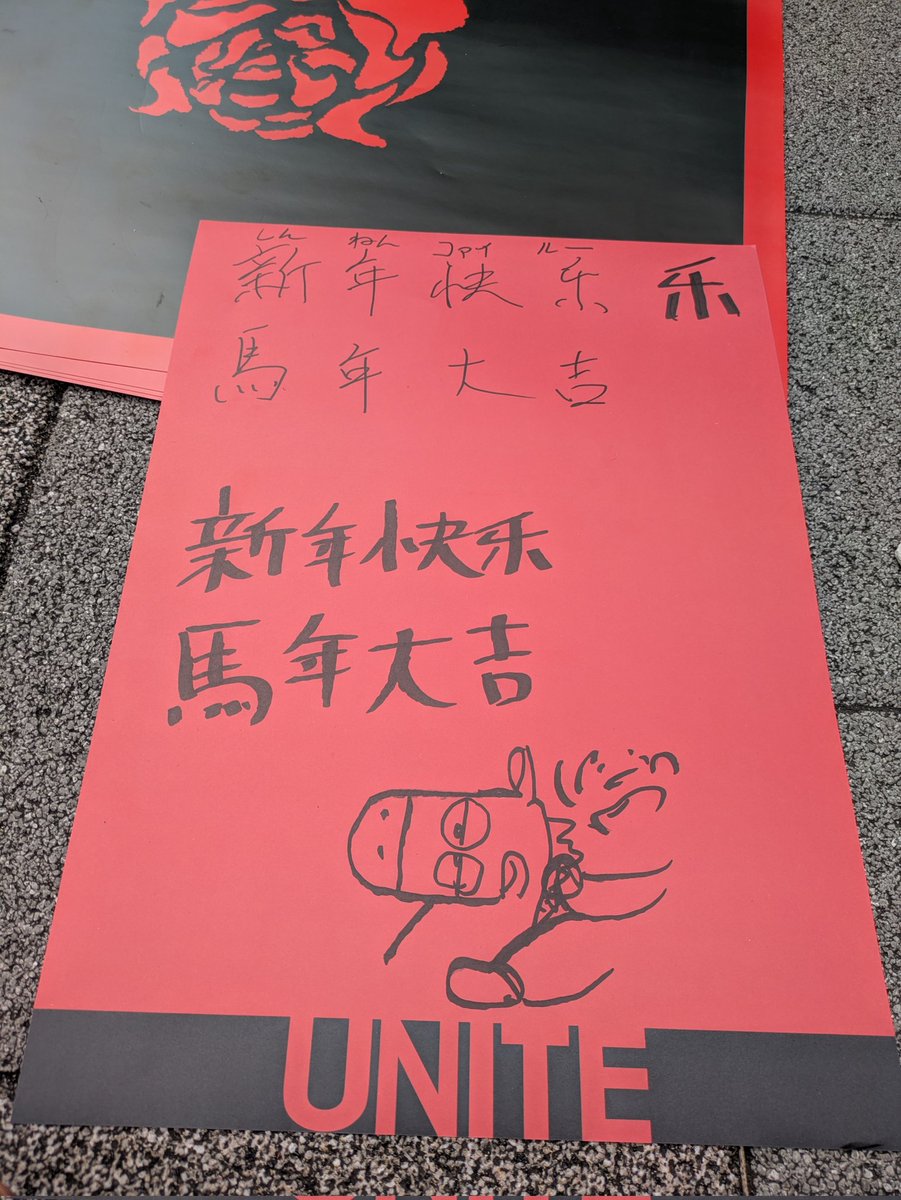 しん ねん コァイ ルー
新年快乐 乐
馬年大吉
新年快乐
馬年大吉
UNITE